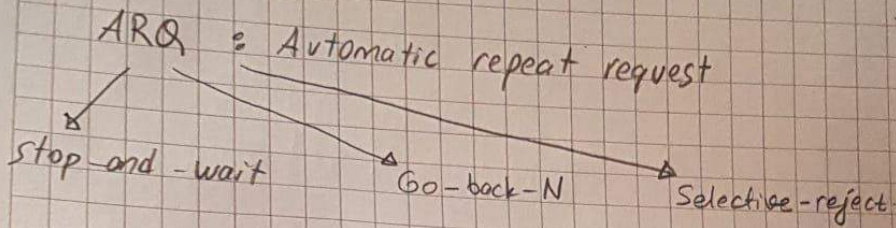 ARQ : Automatic repeat request
Stop-and-wait
Go-back-N
Selective-reject